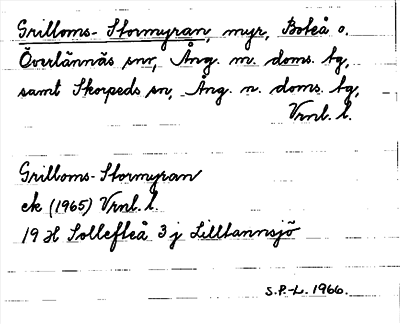 Grilloms-Stormyran, myr, Boteå o.
Överlännäs snr, Ång. m. doms. tg,
samt Skorpeds sn, Ång. n. doms. tg,
Vrnl. l.
Grilloms-Stormyran
ek (1965) Vrnl. l.
19 H Sollefteå 3 j Lilltannsjö
S.P.-L. 1966.